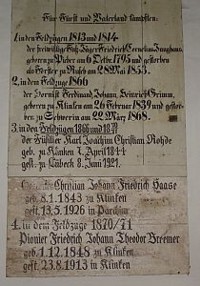 Für Fürst und Vaterland kämpften:
1. in den Feldzügen 1813 und 1814
der freiwillige Fuß-Jäger Friedrich Cornelius Junghans,
geboren zu am 6 Octbr. 1795 und gestorben
als Förster zu Ruest am 28 Mai 1853.
2. in dem Feldzuge 1866
der Hornist Ferdinand Johann Heinrich Grimm,
geboren zu Klinken am 26 Februar 1839 und gestor-
ben zu Schwerin am 22 März 1868.
3. in den Feldzügen 1866 und 18
der Füsilier Karl Joachim Christian Rohde
geb. zu Klinken 7. April 1844
gest. zu Lübeck 8. Juni 1921.
Christian Johann Friedrich Haase
geb. 8.1.1843 zu Klinken
gest. 13.5.1926 in Parchim
4. in dem Feldzuge 1870/71
Pionier Friedrich Johann Theodor Breemer
geb. 1.12.1848 zu Klinken
gest. 23.8.1913 in Klinken